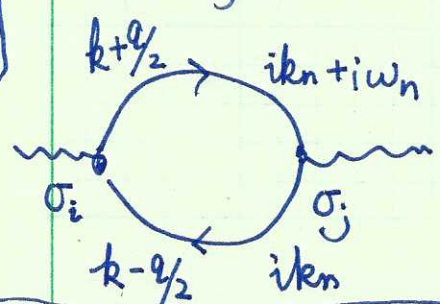 k+q/2 ikn+iωn
σi σj
k-q/2 ikn